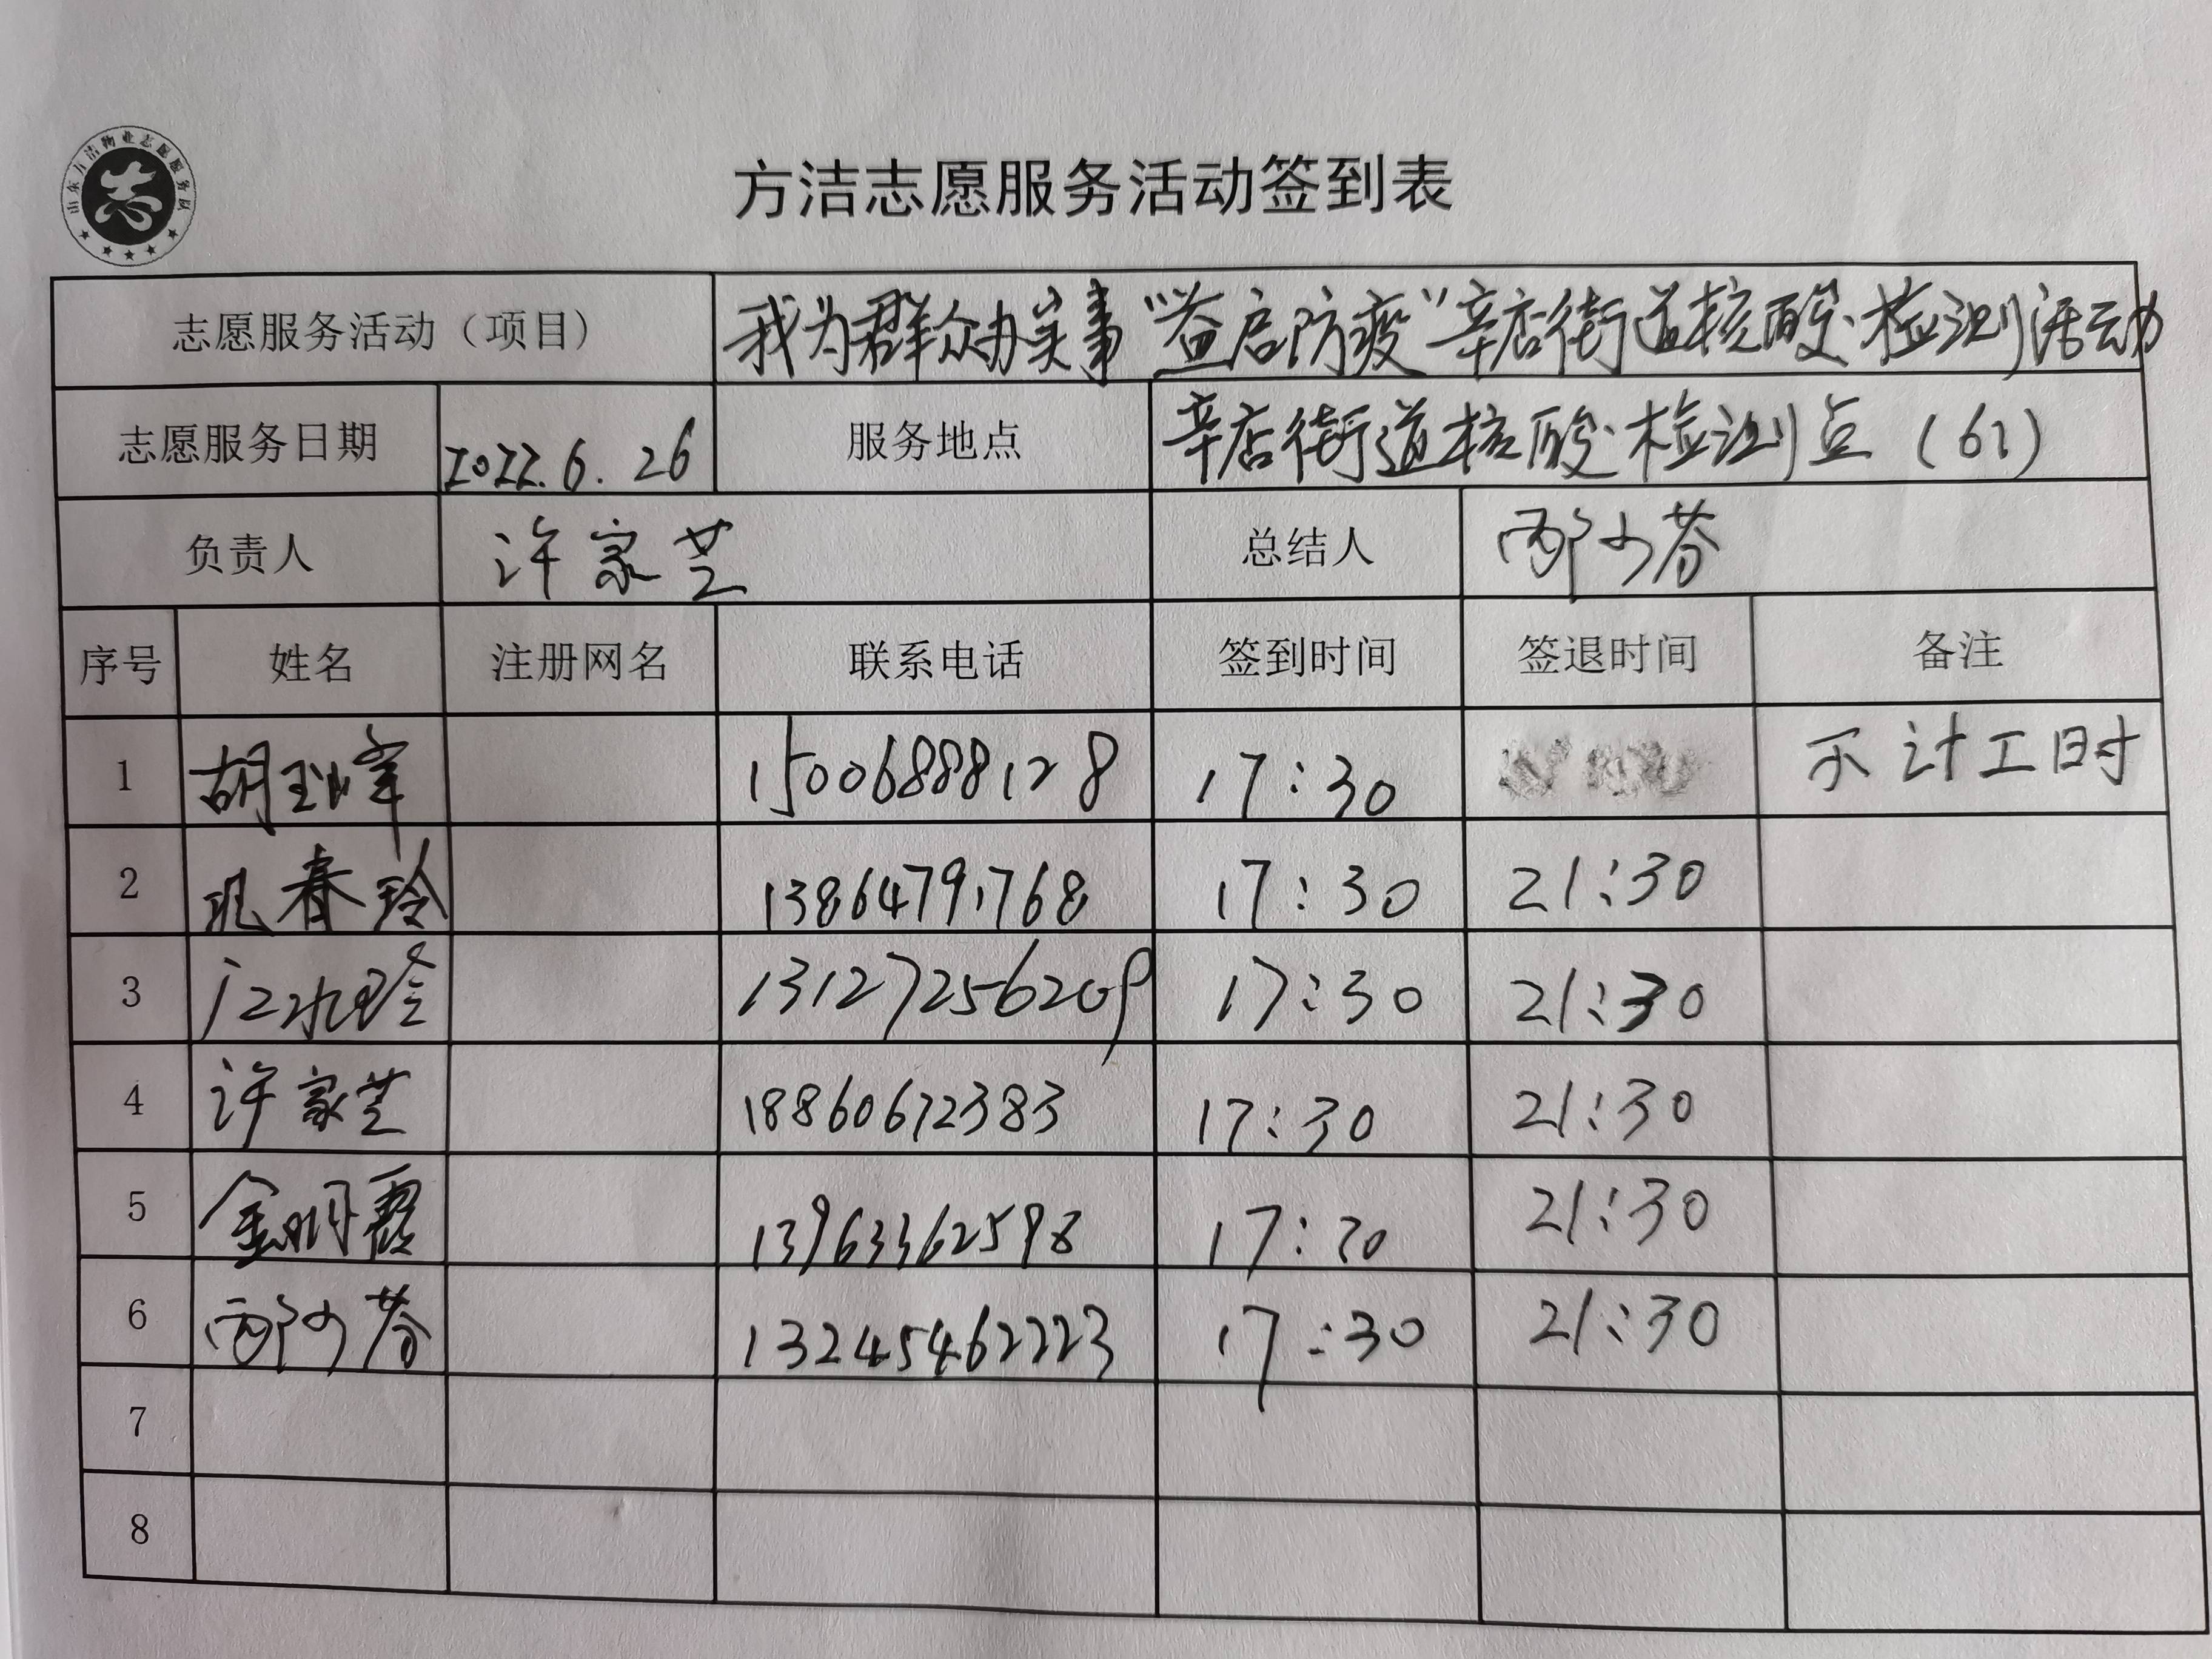 山东方洁物业志愿服务队
方洁志愿服务活动签到表
志愿服务活动（项目） 我为群众办实事“益启防疫”辛店街道核酸检测活动
志愿服务日期 2022.6.26 服务地点 辛店街道核酸检测点（61）
负责人 许家芝 总结人 邴少芬
序号 姓名 注册网名 联系电话 签到时间 签退时间 备注
1 胡玉峰 15006888128 17:30 不计工时
2 春玲 13864791768 17:30 21:30
3 江冰玲 13127256209 17:30 21:30
4 许家芝 18860672383 17:30 21:30
5 金明霞 13963362598 17:30 21:30
6 邴少芬 13245462223 17:30 21:30
7
8